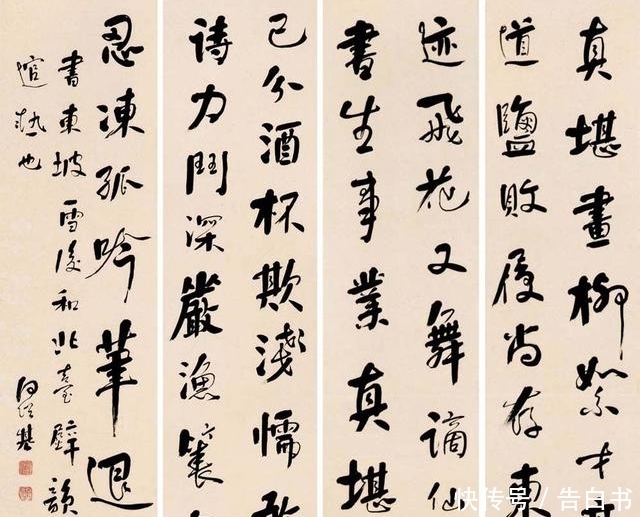 真堪畫柳絮才
道鹽敗履尚存東
迹飛花又舞謫仙
書生事業真堪
已分酒杯欺淺懦敢
詩力鬥深嚴漁簑
忍凍孤吟筆退
書東坡雪後和北臺壁韻
逭熱也
何紹基
快传号/告白书